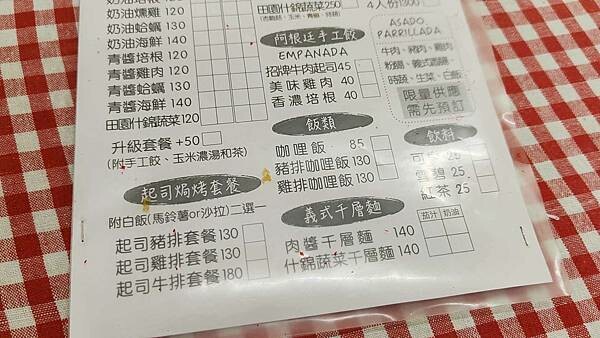 奶油燻雞 120
奶油蛤蠣 130
奶油海鮮 140
青醬培根 120
青醬雞肉 120
青醬蛤蠣 130
青醬海鮮 140
田園什錦蔬菜 120
升級套餐 +50
(附手工餃、玉米濃湯和茶)
起司焗烤套餐
附白飯(馬鈴薯or沙拉)二選一
起司豬排套餐 130
起司雞排套餐 130
起司牛排套餐 180
田園什錦蔬菜 250
阿根廷手工餃
EMPANADA
招牌牛肉起司 45
美味雞肉 40
香濃培根 40
飯類
咖哩飯 85
豬排咖哩飯 130
雞排咖哩飯 130
義式千層麵
茄汁 奶油
肉醬千層麵 140
什錦蔬菜千層麵 140
4人份1300
ASADO
PARRILLADA
牛肉、豬肉、雞肉
時蔬、生菜、白飯
限量供應
需先預訂
飲料
可 25
雪碧 25
紅茶 25